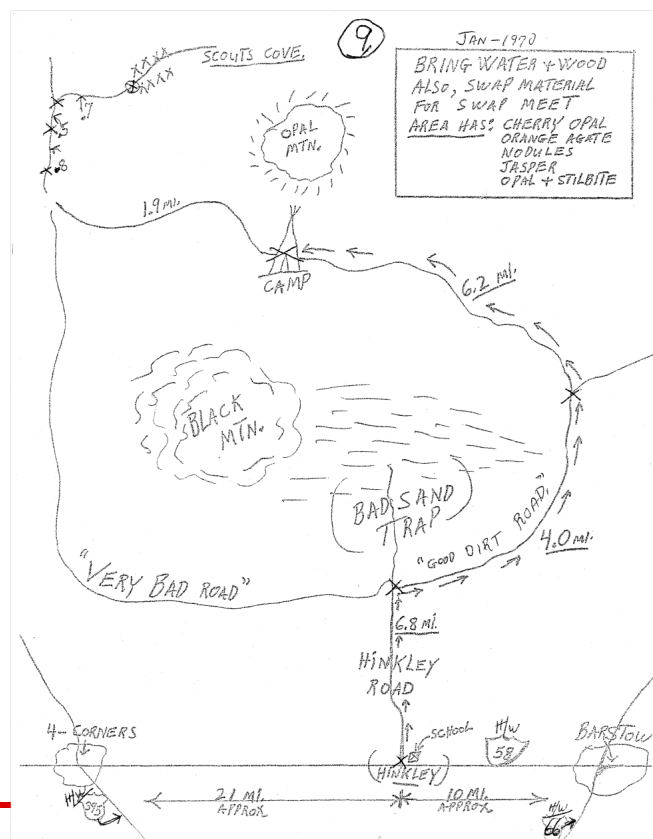 9
JAN-1970
BRING WATER + WOOD
ALSO, SWAP MATERIAL
FOR SWAP MEET
AREA HAS: CHERRY OPAL
ORANGE AGATE
NODULES
JASPER
OPAL + STILBITE
SCOUTS COVE.
XXXX
XXXX
.7
.5
.8
OPAL
MTN.
1.9 MI.
CAMP
6.2 MI.
BLACK
MTN.
(BAD SAND
TRAP)
"GOOD DIRT ROAD."
4.0 MI.
"VERY BAD ROAD"
6.8 MI.
HINKLEY
ROAD
4-CORNERS
SCHOOL
H/W
58
BARSTOW
(HINKLEY)
H/W
395
21 MI.
APPROX
10 MI.
APPROX
H/W
66